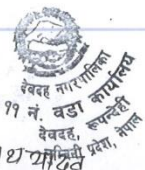 देवदह नगरपालिका
११ नं. वडा कार्यालय
देवदह, रूपन्देही
लुम्बिनी प्रदेश, नेपाल